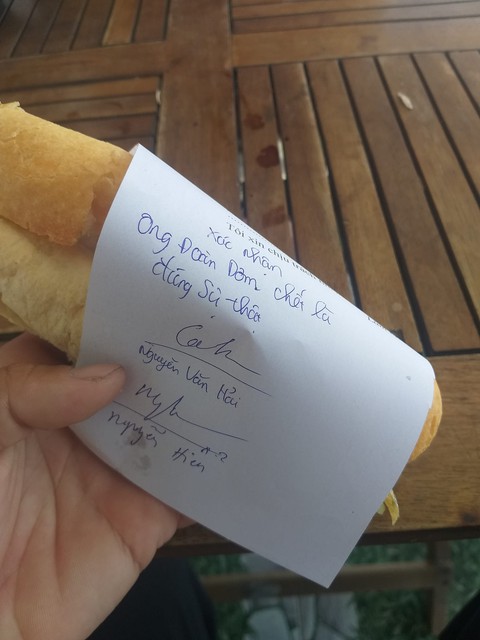 Tôi xin chịu trách
xác nhận
Ông Đoàn Dơm chết là
đúng sự thật
Nguyễn Văn Hải
Nguyễn Hiền